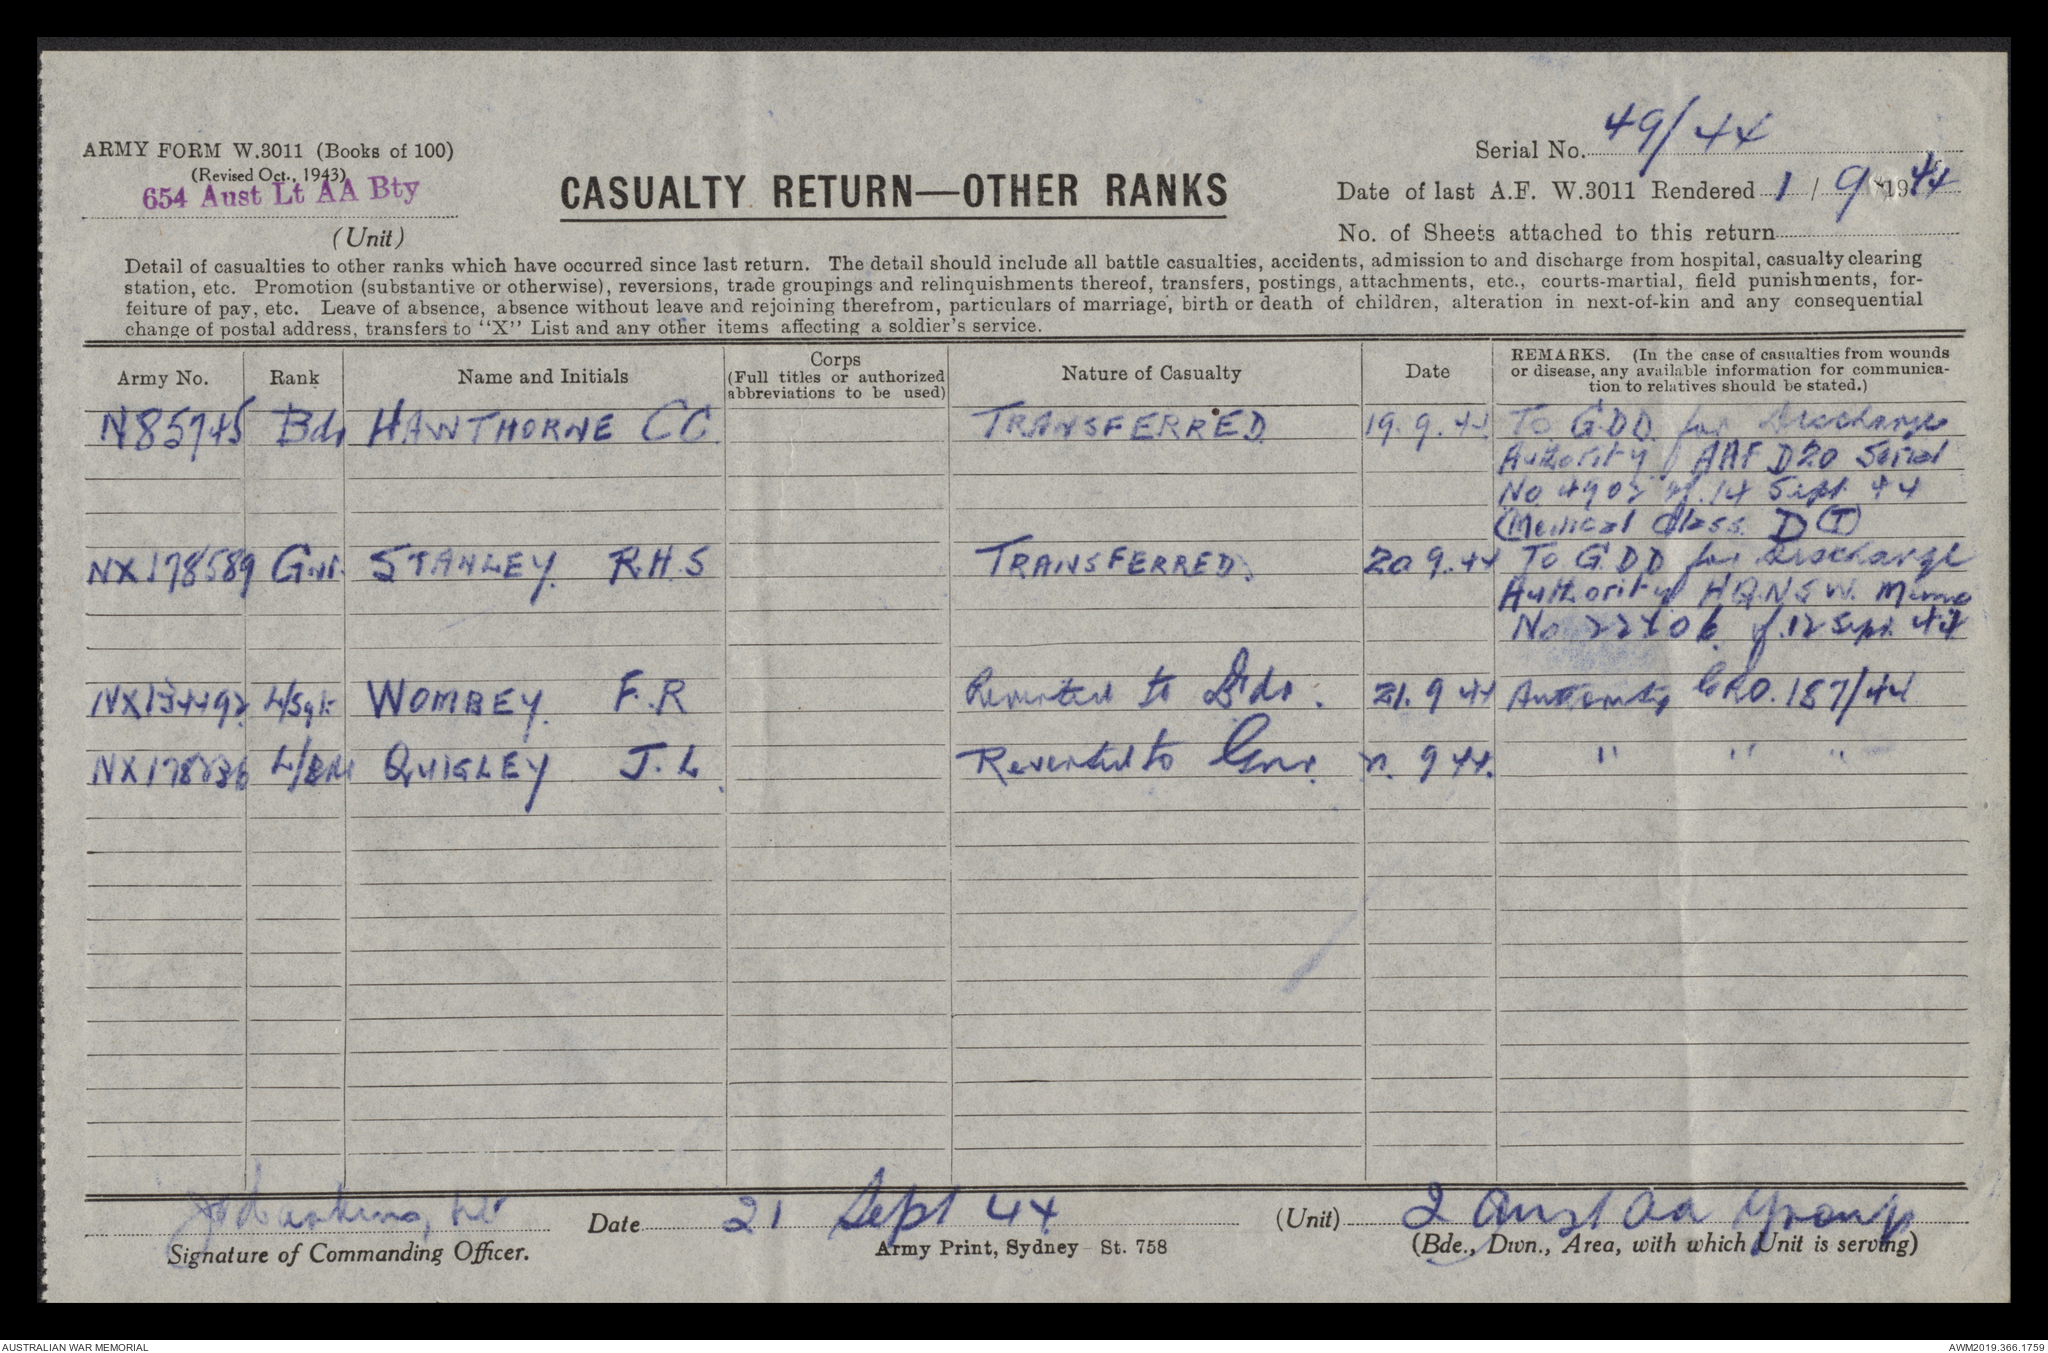 Serial No. 49/44
ARMY FORM W.3011 (Books of 100)
(Revised Oct., 1943)
654 Aust Lt AA Bty
(Unit)
CASUALTY RETURN—OTHER RANKS
Date of last A.F. W.3011 Rendered 1 / 9 -1944
No. of Sheets attached to this return
Detail of casualties to other ranks which have occurred since last return. The detail should include all battle casualties, accidents, admission to and discharge from hospital, casualty clearing
station, etc. Promotion (substantive or otherwise), reversions, trade groupings and relinquishments thereof, transfers, postings, attachments, etc., courts-martial, field punishments, for-
feiture of pay, etc. Leave of absence, absence without leave and rejoining therefrom, particulars of marriage, birth or death of children, alteration in next-of-kin and any consequential
change of postal address, transfers to "X" List and any other items affecting a soldier's service.
Army No.
Rank
Name and Initials
Corps
(Full titles or authorized
abbreviations to be used)
Nature of Casualty
Date
REMARKS. (In the case of casualties from wounds
or disease, any available information for communica-
tion to relatives should be stated.)
N85745 Bdr HAWTHORNE CC. TRANSFERRED 19.9.44 To G.D.D. for Discharge
Authority AAF D20 Serial
No of 14 Sept 44
(Medical Class D (I)
NX178589 Gnr. STANLEY. R.H.S TRANSFERRED. 20 9.44 To G.D.D for Discharge
Authority H.Q.N.S.W. Memo
No of 12 Sept. 44
L/Sgt WOMBEY. F.R Reverted to Bdr. 21. 9 44 Authority GRO. 187/44
L/Bdr QUIGLEY J.L. Reverted to Gnr. 9 44. " " "
Signature of Commanding Officer.
Date 21 Sept 44
Army Print, Sydney—St. 758
(Unit) 2 Aust Aa Group
(Bde., Divn., Area, with which Unit is serving)
AUSTRALIAN WAR MEMORIAL
AWM2019.366.1759